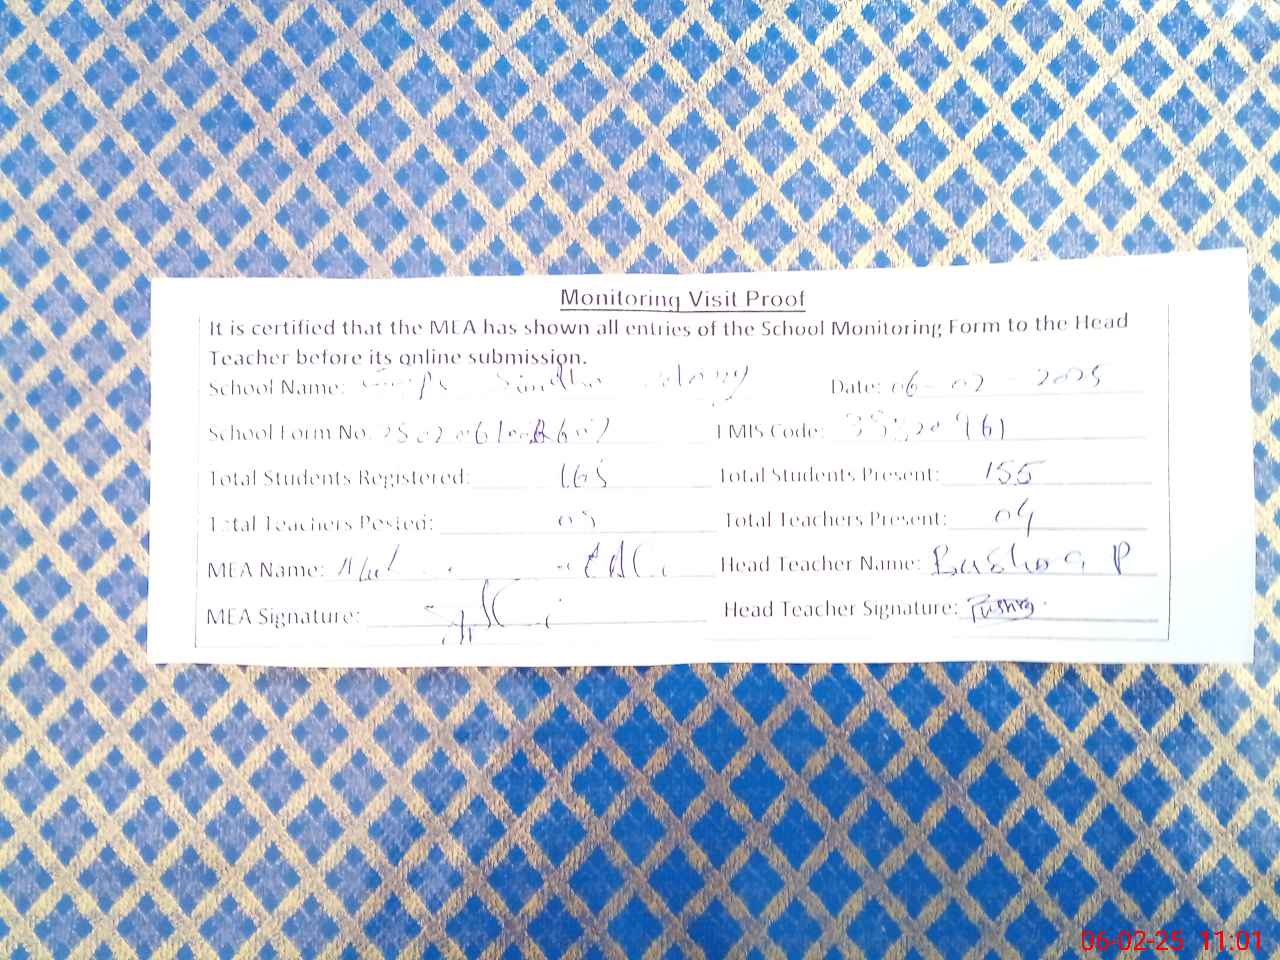 Monitoring Visit Proof
It is certified that the MEA has shown all entries of the School Monitoring Form to the Head
Teacher before its online submission.
School Name: Date: 06-02-2025
School Form No. EMIS Code:
Total Students Registered: 165 Total Students Present: 155
Total Teachers Posted: 05 Total Teachers Present: 04
MEA Name: Head Teacher Name: Bushra P
MEA Signature: Head Teacher Signature: Bushra
06-02-25 11:01